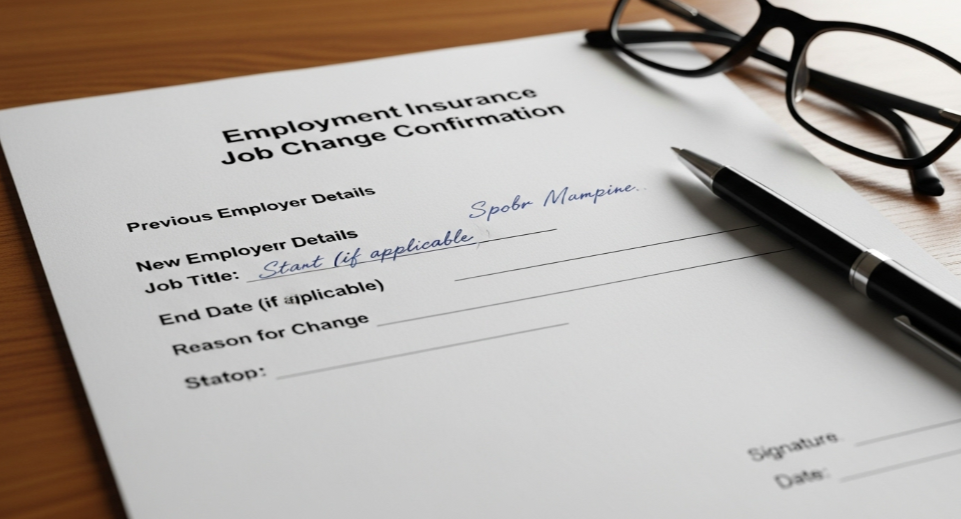 Employment Insurance
Job Change Confirmation
Previous Employer Details
Spobr Mampine..
New Employerr Details
Job Title: Stant (if applicable
End Date (if aplicable)
Reason for Change
Statop:
Signature
Date: